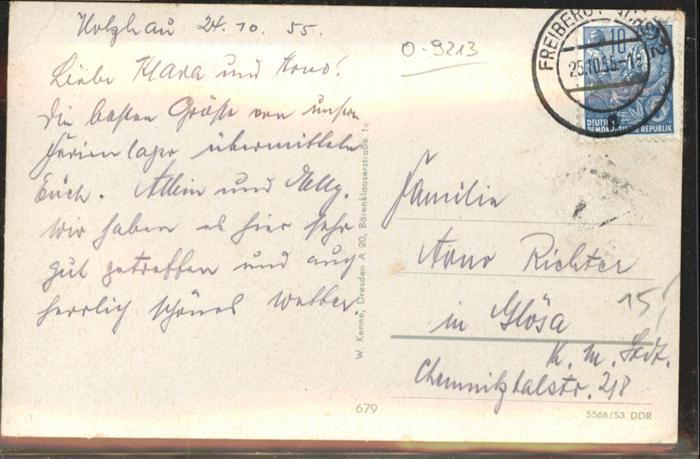 Holzhau 24. 10. 55.
O-9213
Liebe Klara und Arno!
Die besten Grüße von unsern
Ferienlager übermitteln
Euch. und
Wir haben es hier sehr
gut getroffen und auch
herrlich schönes Wetter.
W. Kenne, Dresden A 20, Bärenklauserstraße 1c
FREIBERG
25.10.55
10
DEUTSCHE
DEMOKRATISCHE REPUBLIK
Familie
Arno Richter
in Glösa
K. M. Stdt.
Chemnitztalstr. 218
15
679
5568/53 DDR